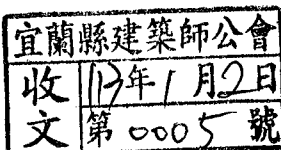 宜蘭縣建築師公會
收文
113年1月2日
第0005號